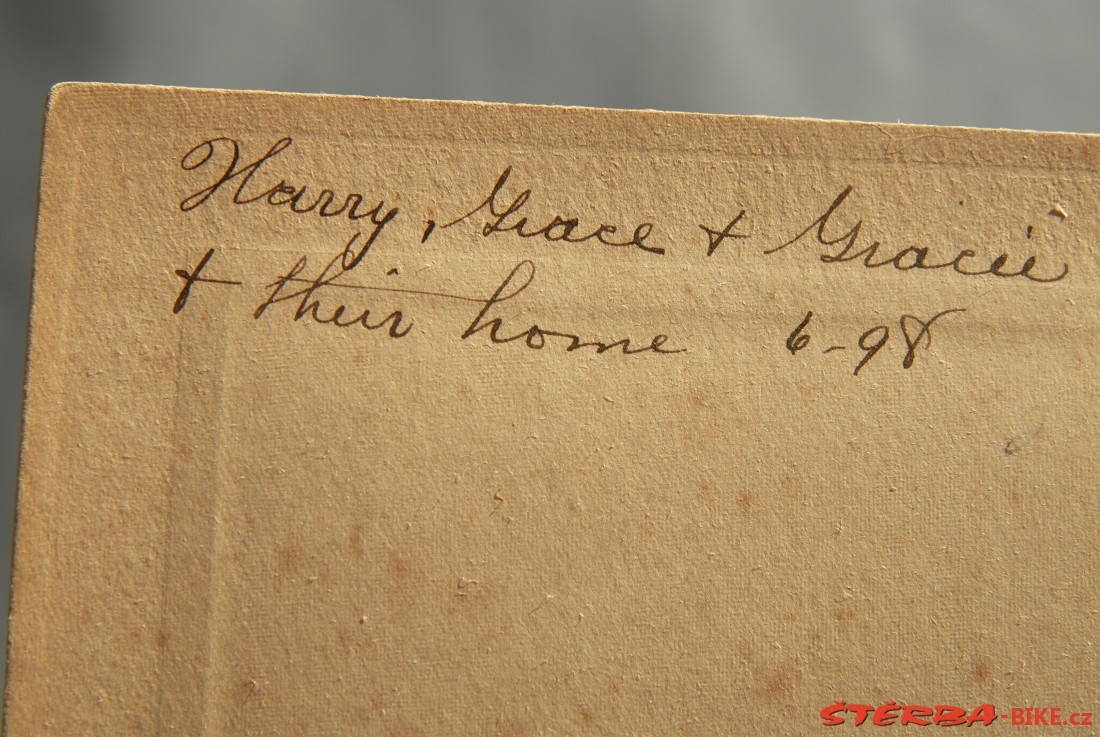 Harry, Grace + Gracie
+ their home 6-98
ŠTĚRBA-BIKE.cz